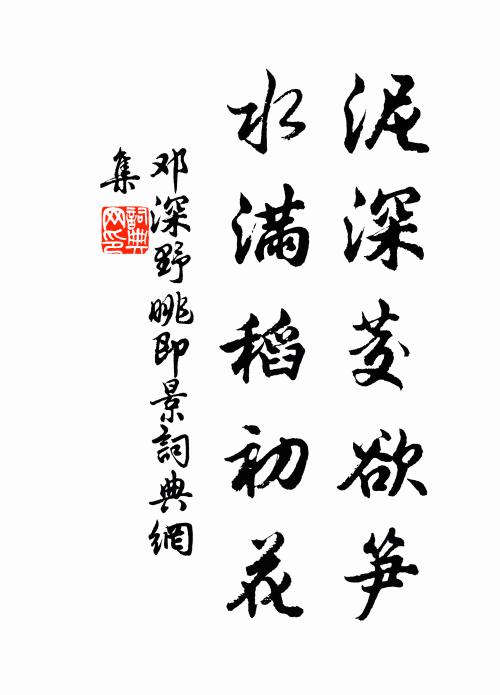 泥深茭欲笋
水满稻初花
邓深野眺即景詞典網
集
詞典
网印